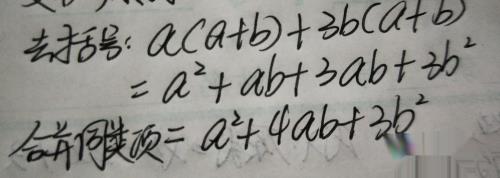 去括号: a(a+b)+3b(a+b)
= a²+ab+3ab+3b²
合并同类项= a²+4ab+3b²